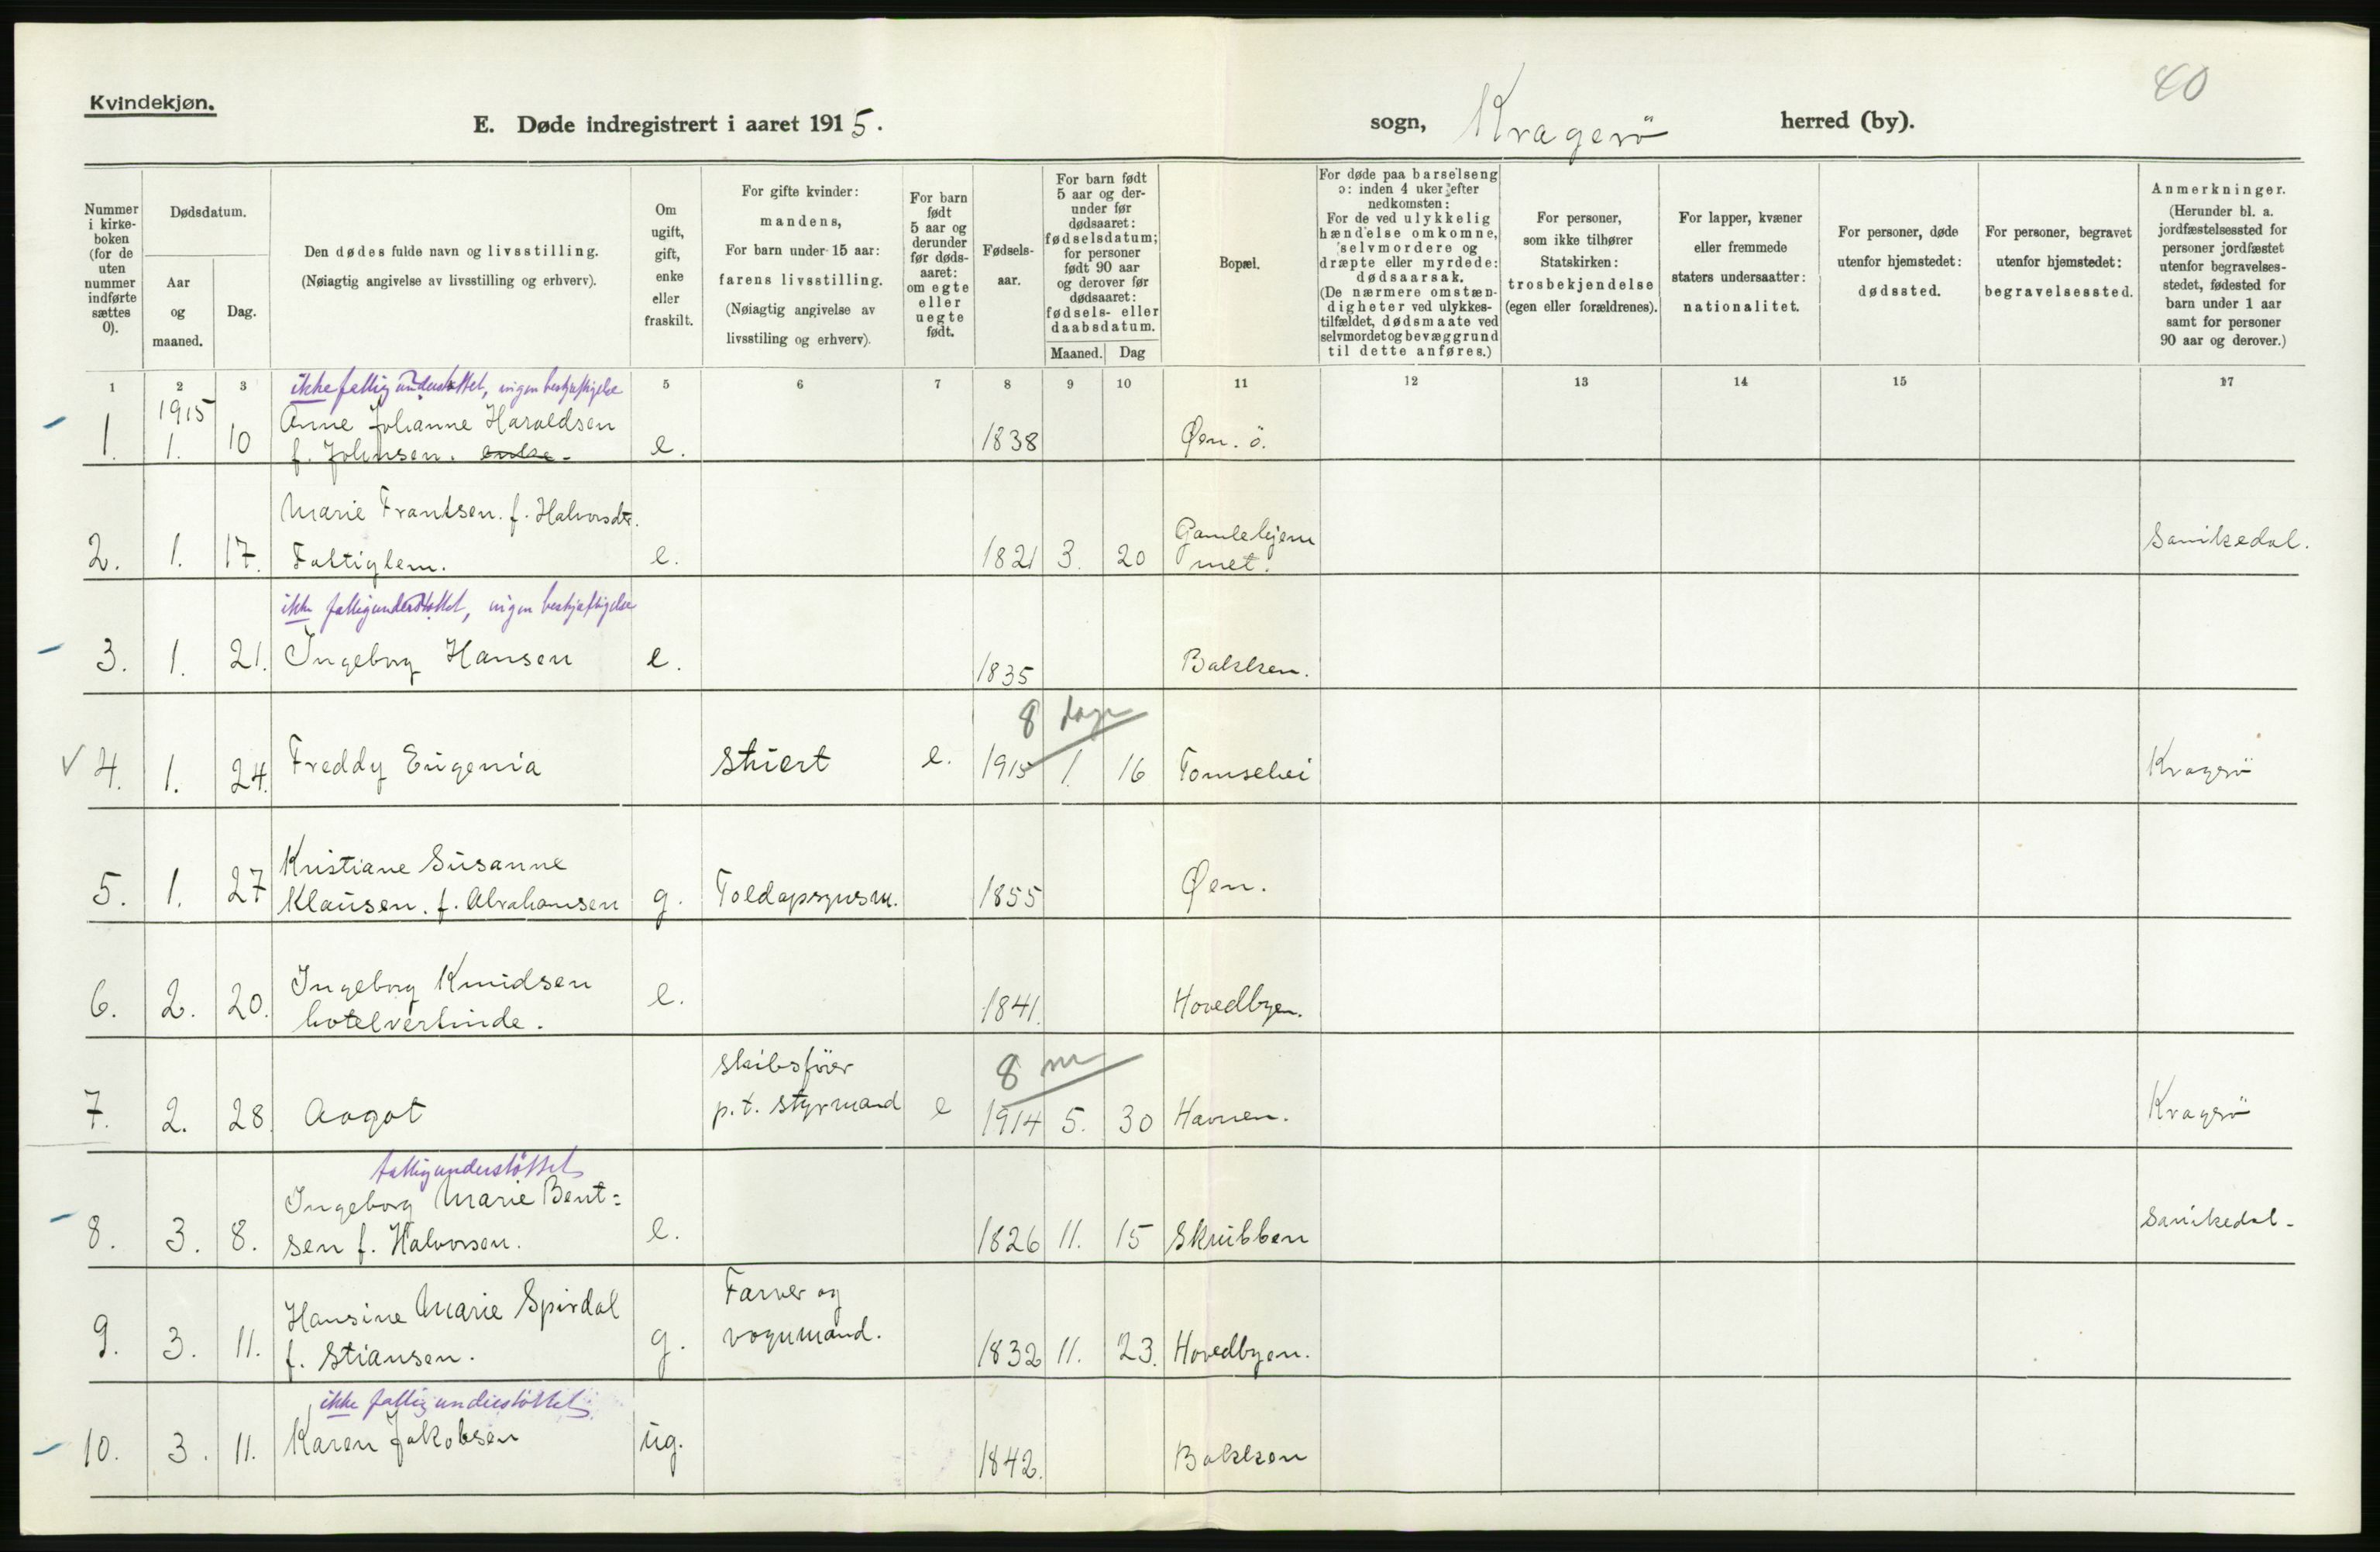 Kvindekjøn.
40
E. Døde indregistrert i aaret 1915.
sogn, Kragerö herred (by).
Nummer i kirke-boken (for de uten nummer indførte sættes 0).
Dødsdatum.
Aar og maaned.
Dag.
Den dødes fulde navn og livsstilling.
(Nøiagtig angivelse av livsstilling og erhverv).
Om ugift, gift, enke eller fraskilt.
For gifte kvinder: mandens, For barn under 15 aar: farens livsstilling.
(Nøiagtig angivelse av livsstiling og erhverv).
For barn født 5 aar og derunder før døds-aaret: om egte eller uegte født.
Fødsels-aar.
For barn født 5 aar og der-under før dødsaaret: fødselsdatum; for personer født 90 aar og derover før dødsaaret: fødsels- eller daabsdatum.
Maaned. Dag
Bopæl.
For døde paa barselseng ɔ: inden 4 uker efter nedkomsten:
For de ved ulykkelig hændelse omkomne, selvmordere og dræpte eller myrdede: dødsaarsak.
(De nærmere omstæn-digheter ved ulykkes-tilfældet, dødsmaate ved selvmordet og bevæggrund til dette anføres.)
For personer, som ikke tilhører Statskirken: trosbekjendelse (egen eller forældrenes).
For lapper, kvæner eller fremmede staters undersaatter: nationalitet.
For personer, døde utenfor hjemstedet: dødssted.
For personer, begravet utenfor hjemstedet: begravelsessted.
Anmerkninger.
(Herunder bl. a. jordfæstelsessted for personer jordfæstet utenfor begravelses-stedet, fødested for barn under 1 aar samt for personer 90 aar og derover.)
1 2 3 5 6 7 8 9 10 11 12 13 14 15 17
ikke fattigunderstøttet, ingen beskjæftigelse
1915
Anne Johanne Haraldsen
1. 1. 10 f. Johnsen. enke - e. 1838 Øen. ö.
Marie Frantsen. f. Halvorsdtr.
2. 1. 17. Fattiglem. e. 1821 3. 20 Gamlehjem
met. Sanikedal.
ikke fattigunderstøttet, ingen beskjæftigelse
3. 1. 21. Ingeborg Hansen e. 1835 Bakken.
8 dage
4. 1. 24. Freddy Eugenia Stuert e. 1915 1. 16 Tomsehei Kragerö
Kristiane Susanne
5. 1. 27 Klausen. f. Abrahamsen g. Toldopsynsm. 1855 Øen.
Ingeborg Knudsen
6. 2. 20. hotelvertinde. e. 1841. Hovedbyen.
Skibsförer 8 m
7. 2. 28. Aagot p.t. styrmand e 1914 5. 30 Havnen. Kragerö
fattigunderstöttet
Ingeborg Marie Bent=
8. 3. 8. sen f. Halvorsen. e. 1826 11. 15 Skrubben Sanikedal.
Hansine Marie Spirdal Farver og
9. 3. 11. f. Stiansen. g. vognmand. 1832 11. 23. Hovedbyen.
ikke fattigunderstöttet
10. 3. 11. Karen Jakobsen ug. 1842. Bakken